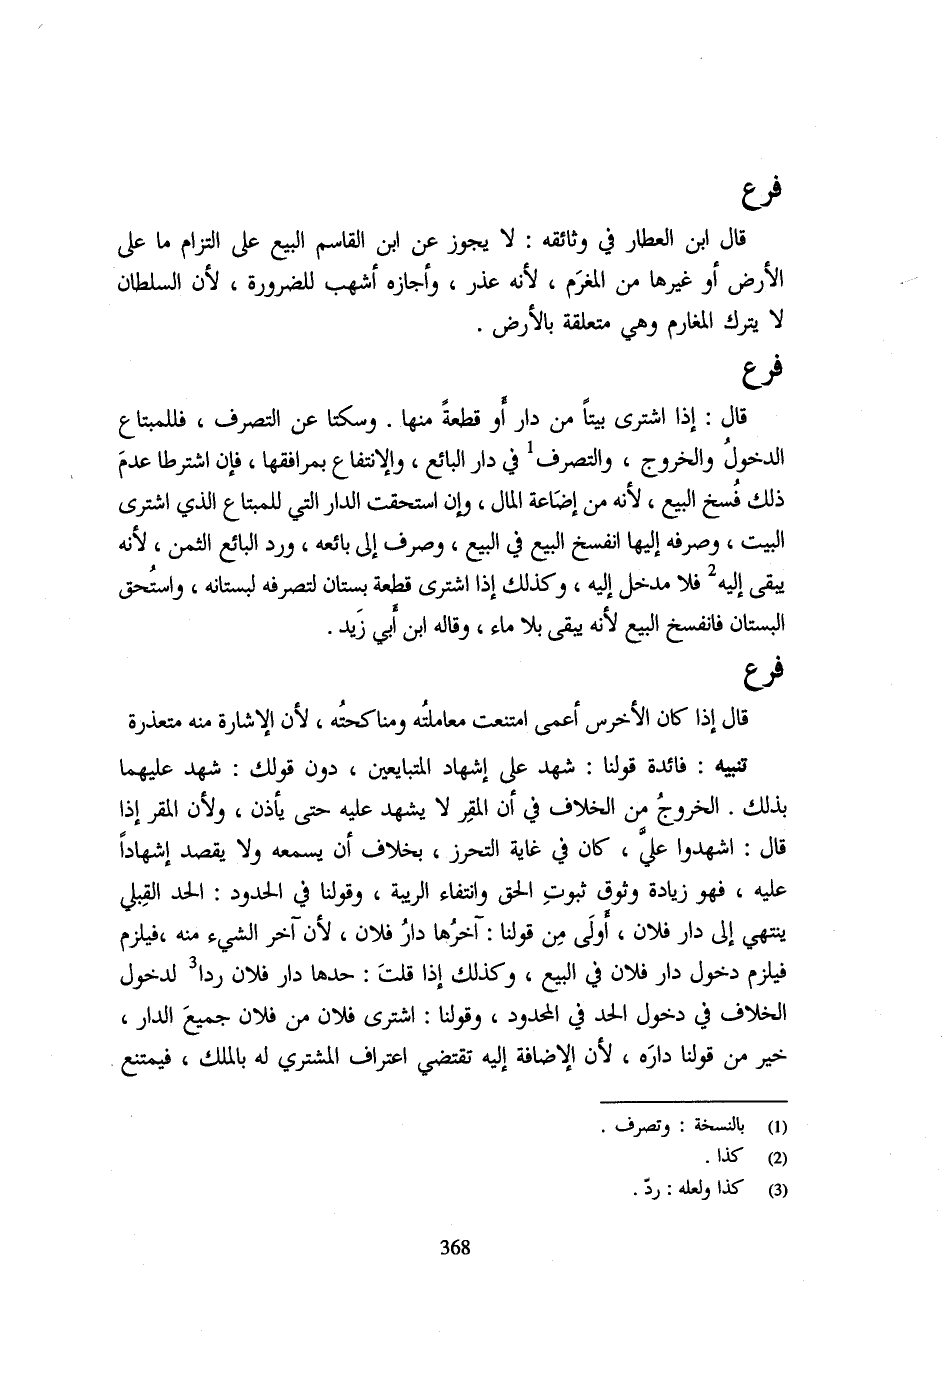 فرع
قال ابن العطار في وثائقه : لا يجوز عن ابن القاسم البيع على التزام ما على
الأرض أو غيرها من المغرَم ، لأنه عذر ، وأجازه أشهب للضرورة ، لأن السلطان
لا يترك المغارم وهي متعلقة بالأرض .
فرع
قال : إذا اشترى بيتاً من دار أو قطعةً منها . وسكتا عن التصرف ، فللمبتاع
الدخولُ والخروج ، والتصرف1 في دار البائع ، والإنتفاع بمرافقها ، فإن اشترطا عدمَ
ذلك فُسخ البيع ، لأنه من إضَاعة المال ، وإن استحقت الدار التي للمبتاع الذي اشترى
البيت ، وصرفه إليها انفسخ البيع في البيع ، وصرف إلى بائعه ، ورد البائع الثمن ، لأنه
يبقى إليه2 فلا مدخل إليه ، وكذلك إذا اشترى قطعة بستان لتصرفه لبستانه ، واستُحق
البستان فانفسخ البيع لأنه يبقى بلا ماء ، وقاله ابن أَبي زَيد .
فرع
قال إذا كان الأخرس أعمى امتنعت معاملتُه ومناكحتُه ، لأن الإشارة منه متعذرة
تنبيه : فائدة قولنا : شهد على إشهاد المتبايعين ، دون قولك : شهد عليهما
بذلك . الخروجُ من الخلاف في أن المقِر لا يشهد عليه حتى يأذن ، ولأن المقر إذا
قال : اشهدوا عليَّ ، كان في غاية التحرز ، بخلاف أن يسمعه ولا يقصد إشهاداً
عليه ، فهو زيادة وثوق ثبوتِ الحق وانتفاء الريبة ، وقولنا في الحدود : الحد القِبلي
ينتهي إلى دار فلان ، أَولَى مِن قولنا : آخرُها دارُ فلان ، لأن آخر الشيء منه ،فيلزم
فيلزم دخول دار فلان في البيع ، وكذلك إذا قلتَ : حدها دار فلان ردا3 لدخول
الخلاف في دخول الحد في المحدود ، وقولنا : اشترى فلان من فلان جميعَ الدار ،
خير من قولنا دارَه ، لأن الإضافة إليه تقتضي اعتراف المشتري له بالملك ، فيمتنع
(1) بالنسخة : وتصرف .
(2) كذا .
(3) كذا ولعله : ردّ .
368